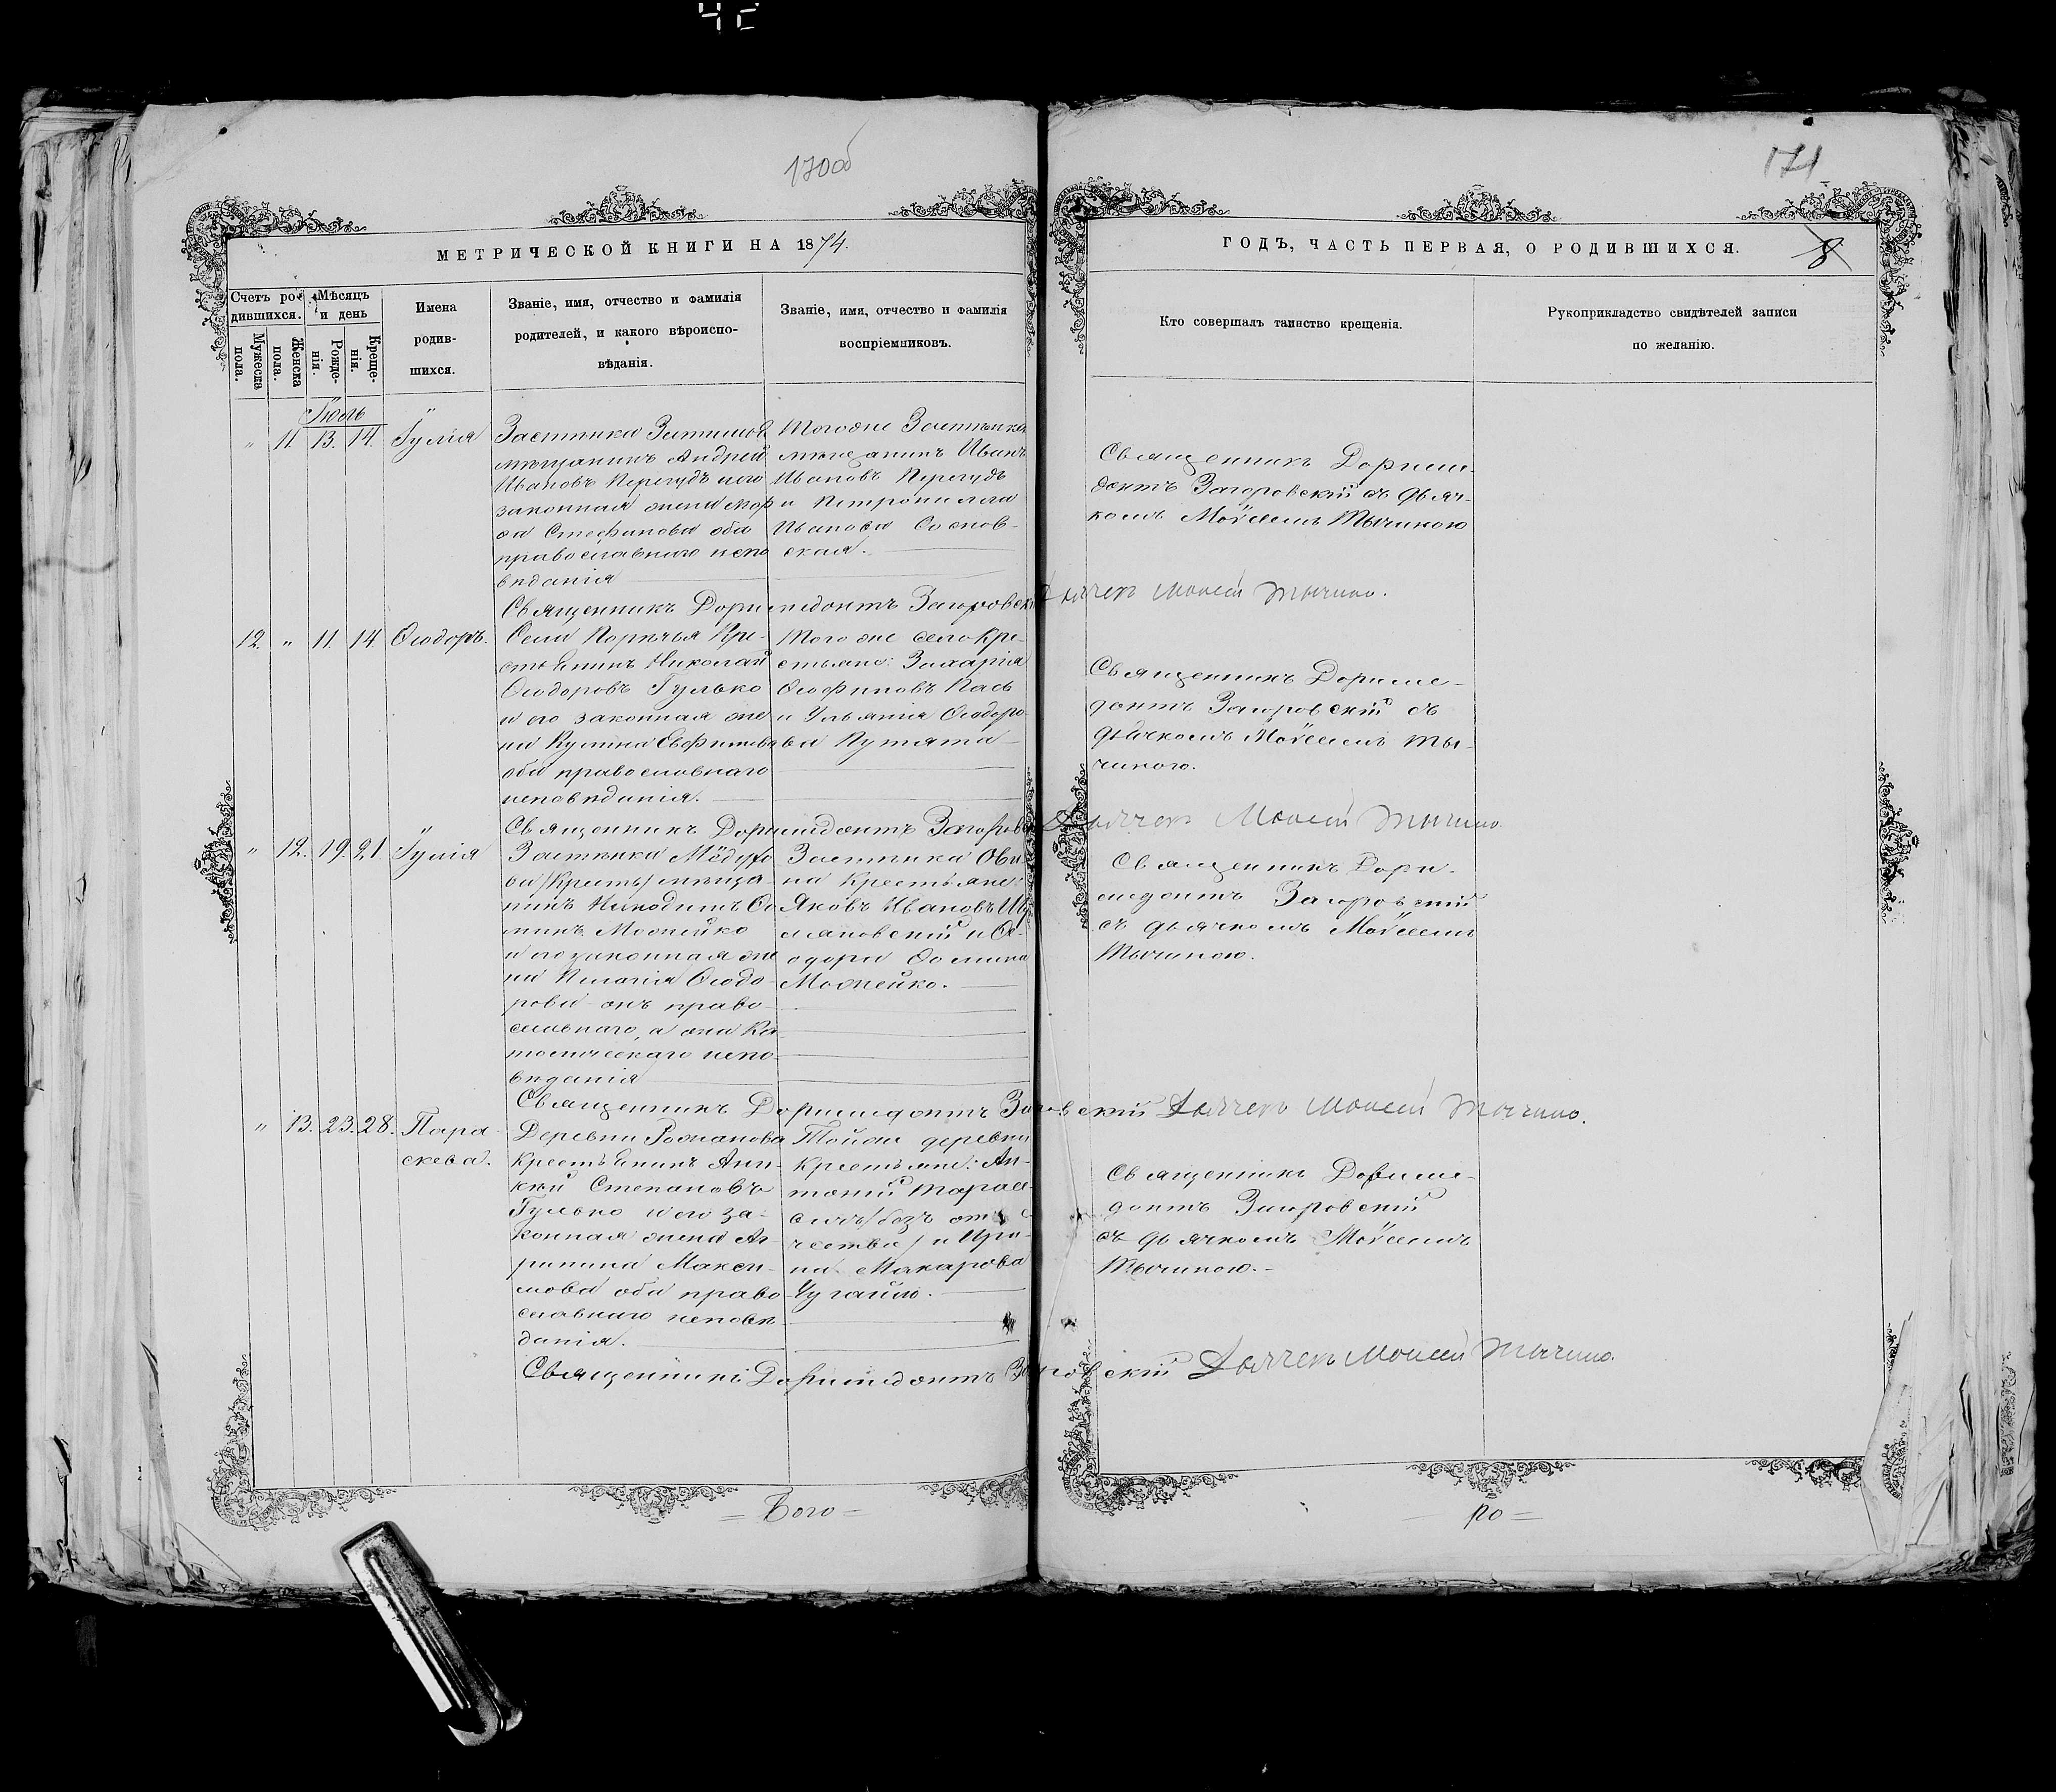 170об
171
МЕТРИЧЕСКОЙ КНИГИ НА 1874.
ГОДЪ, ЧАСТЬ ПЕРВАЯ, О РОДИВШИХСЯ.
8
Счетъ ро-
дившихся.
Мѣсяцъ
и день
Мужеска
пола.
Женска
пола.
Рожде-
нія.
Креще-
нія.
Имена
родив-
шихся.
Званіе, имя, отчество и фамилія
родителей, и какого вѣроиспо-
вѣданія.
Званіе, имя, отчество и фамилія
воспріемниковъ.
Кто совершалъ таинство крещенія.
Рукоприкладство свидѣтелей записи
по желанію.
Іюль
" 11. 13. 14. Іулія
Застѣнка
мѣщанинъ Андрей
Ивановъ Перегудъ и его
законная жена
Стефанова оба
православнаго испо
вѣданія
Тогоже Застѣнка
мѣщанинъ Иванъ
Ивановъ Перегудъ
и Петронилла
Иванова Соснов-
ская.
Священникъ Дориме-
донтъ Загоровскій съ дьяч-
комъ Моѵсеемъ Тычиною
Священникъ Доримедонтъ Загоровскій Дьячек Моисей Тычино.
12. " 11. 14 Ѳеодоръ.
Села Порѣчья Кре-
стьянинъ Николай
Ѳеодоровъ Гулько
и его законная же
на Евфимова
оба православнаго
исповѣданія.
Того же села Кре-
стьяне: Захарія
Пась
и Ульянія Ѳеодоро-
ва Путята
Священникъ Дориме-
донтъ Загоровскій съ
дьячкомъ Моѵсеемъ Ты-
чиною.
Священникъ Доримедонтъ Загоров Дьячек Моисей Тычино
" 12. 19. 21. Іулія
Застѣнка
/Крест/ мѣща-
нинъ Никодимъ Со
Можейко
и его законная же
на Пелагія Ѳеодо-
рова онъ право-
славнаго, а она Ка
толическаго испо-
вѣданія
Застѣнка
на Крестьяне:
Яковъ Ивановъ
и Ѳе-
одора
Можейко.
Священникъ Дори-
медонтъ Загоровскій
съ дьячкомъ Моѵсеемъ
Тычиною.
Священникъ Доримедонтъ Загоровскій Дьячек Моисей Тычино.
" 13. 23. 28. Пара-
скева.
Деревни Рожанова
Крестьянинъ
Степановъ
Гулько и его за-
конная жена Аг-
рипина Макси-
мова оба право-
славнаго исповѣ
данія.
Тойже деревни
Крестьяне: Ан-
тоній Тарасе-
/безъ от
чества/ и Ири-
на Макарова
Чугайло.
Священникъ Дориме-
донтъ Загоровскій
съ дьячкомъ Моѵсеемъ
Тычиною.-
Священникъ Доримедонтъ Загоровскій Дьячек Моисей Тычино.
= Бого =
ро =